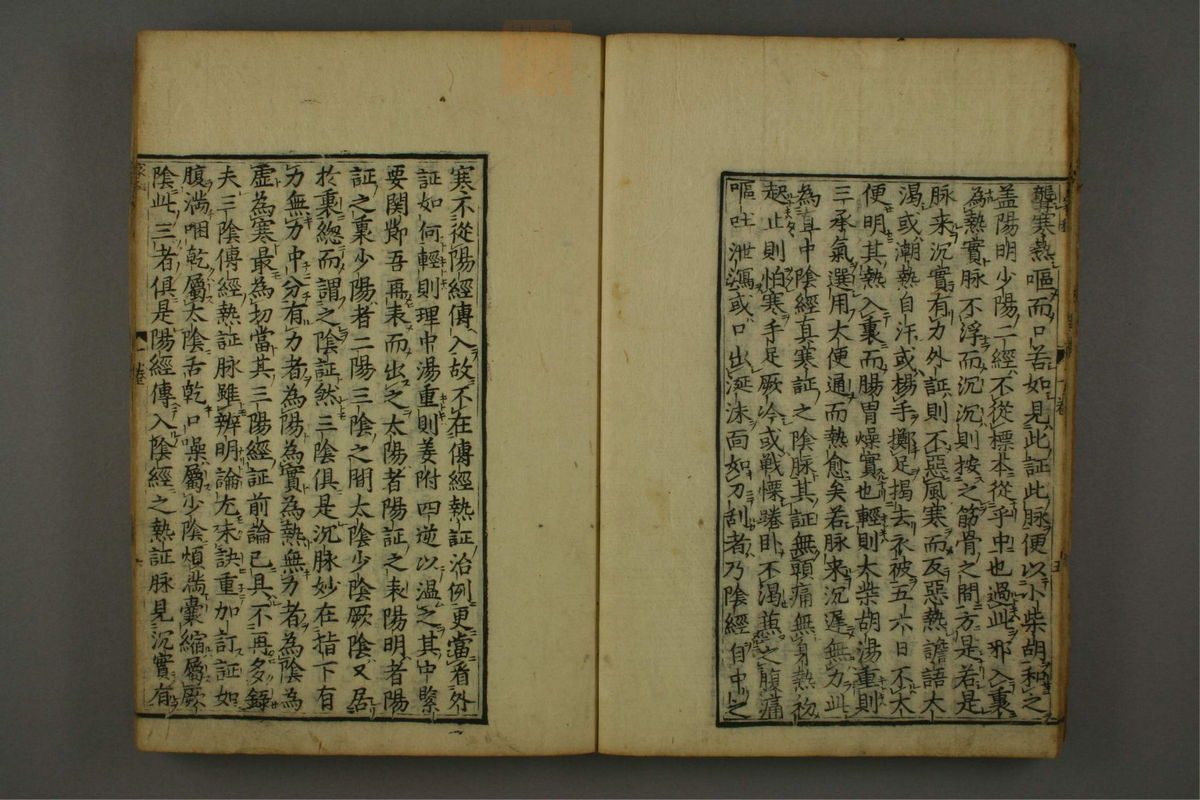 聾寒熱嘔而口苦如見此証此脉便以小柴胡和之
盖陽明少陽二經不從標本從乎中也過此邪入裏
為熱實脉不浮而沉沉則按之筋骨之間方是若是
脉来沉實有力外証則不惡風寒而反惡熱譫語大
渴或潮熱自汗或楊手擲足揭去衣被五六日不大
便明其熱入裏而腸胃燥實也輕則大柴胡湯重則
三承氣選用大便通而熱愈矣若脉来沉遲無力此
為直中陰經真寒証之陰脉其証無頭痛無身熱初
起止則怕寒手足厥冷或戦慄踡卧不渴兼之腹痛
嘔吐泄瀉或口出涎沫面如刀刮者乃陰經自中之
寒不從陽經傳入故不在傳經熱証治例更當看外
証如何輕則理中湯重則姜附四逆以温之其中緊
要関節吾再表而出之太陽者陽証之表陽明者陽
証之裏少陽者二陽三陰之間太陰少陰厥陰又居
於裏總而謂之陰証然三陰俱是沉脉妙在指下有
力無力中分有力者為陽為實為熱無力者為陰為
虚為寒最為切當其三陽經証前論已具不再多録
夫三陰傳經熱証脉雖辨明論尢未訣重加訂証如
腹満咽乾屬太陰舌乾口噪屬少陰煩満囊縮屬厥
陰此三者俱是陽經傳入陰經之熱証脉見沉實有